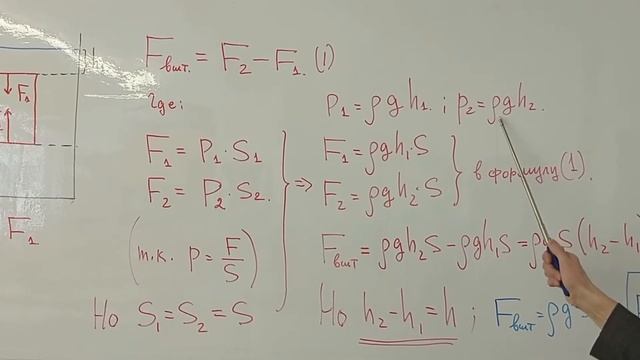 Fвшт. = F₂ − F₁. (1)
F₁
где:
F₁ = P₁ · S₁
F₂ = P₂ · S₂.
(т.к. P = F/S)
Но S₁ = S₂ = S
F₁
⇒
p₁ = ρgh₁. ; p₂ = ρgh₂.
F₁ = ρgh₁·S
F₂ = ρgh₂·S
в формулу (1).
Fвшт = ρgh₂S − ρgh₁S = ρgS(h₂−h₁
Но h₂−h₁ = h ;
Fвшт = ρg